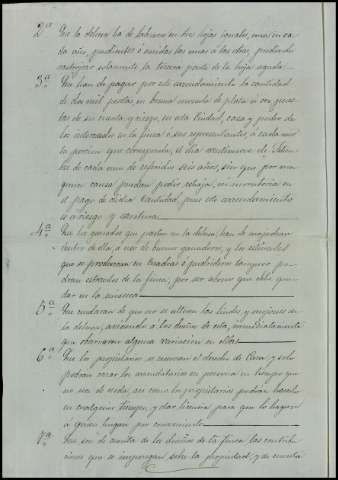 2ª Que la dehesa ha de labrarse en tres hojas iguales, una en ca-
da año, pendientes ó unidas las unas á las otras, pudiendo
rastrojar solamente la tercera parte de la hoja segada.
3ª Que han de pagar por este arrendamiento la cantidad
de dos mil pesetas, en buena moneda de plata ú oro, pues-
tas de su cuenta y riesgo, en esta ciudad, casa y poder de
los interesados en la finca ó sus representantes, á cada uno
la porcion que corresponda, el dia veintinueve de Setiem-
bre de cada uno de referidos seis años, sin que por nin-
guna causa puedan pedir rebaja, ni moratoria en
el pago de dicha cantidad, pues este arrendamiento
es á riesgo y ventura
4ª Que los ganados que pasten en la dehesa, han de majadear
dentro de ella, á uso de buenos ganaderos, y los estiércoles
que se produzcan en cuadras ó pudrideros tampoco po-
drán extraerlos de la finca, por ser abono que debe que-
dar en la misma
5ª Que cuidarán de que no se alteren los lindes y mojones de
la dehesa, avisando á los dueños de esta, inmediatamente
que observaren alguna variacion en ellos
6ª Que los propietarios se reservan el derecho de Caza y solo
podrán cazar los arrendatarios en persona en tiempo que
no sea de veda, así como los propietarios podrán hacerlo
en cualquier tiempo, y dar licencia para que lo hagan
á quien tengan por conveniente
7ª Que son de cuenta de los dueños de la finca las contribu-
ciones que se impongan sobre la propiedad, y de cuenta